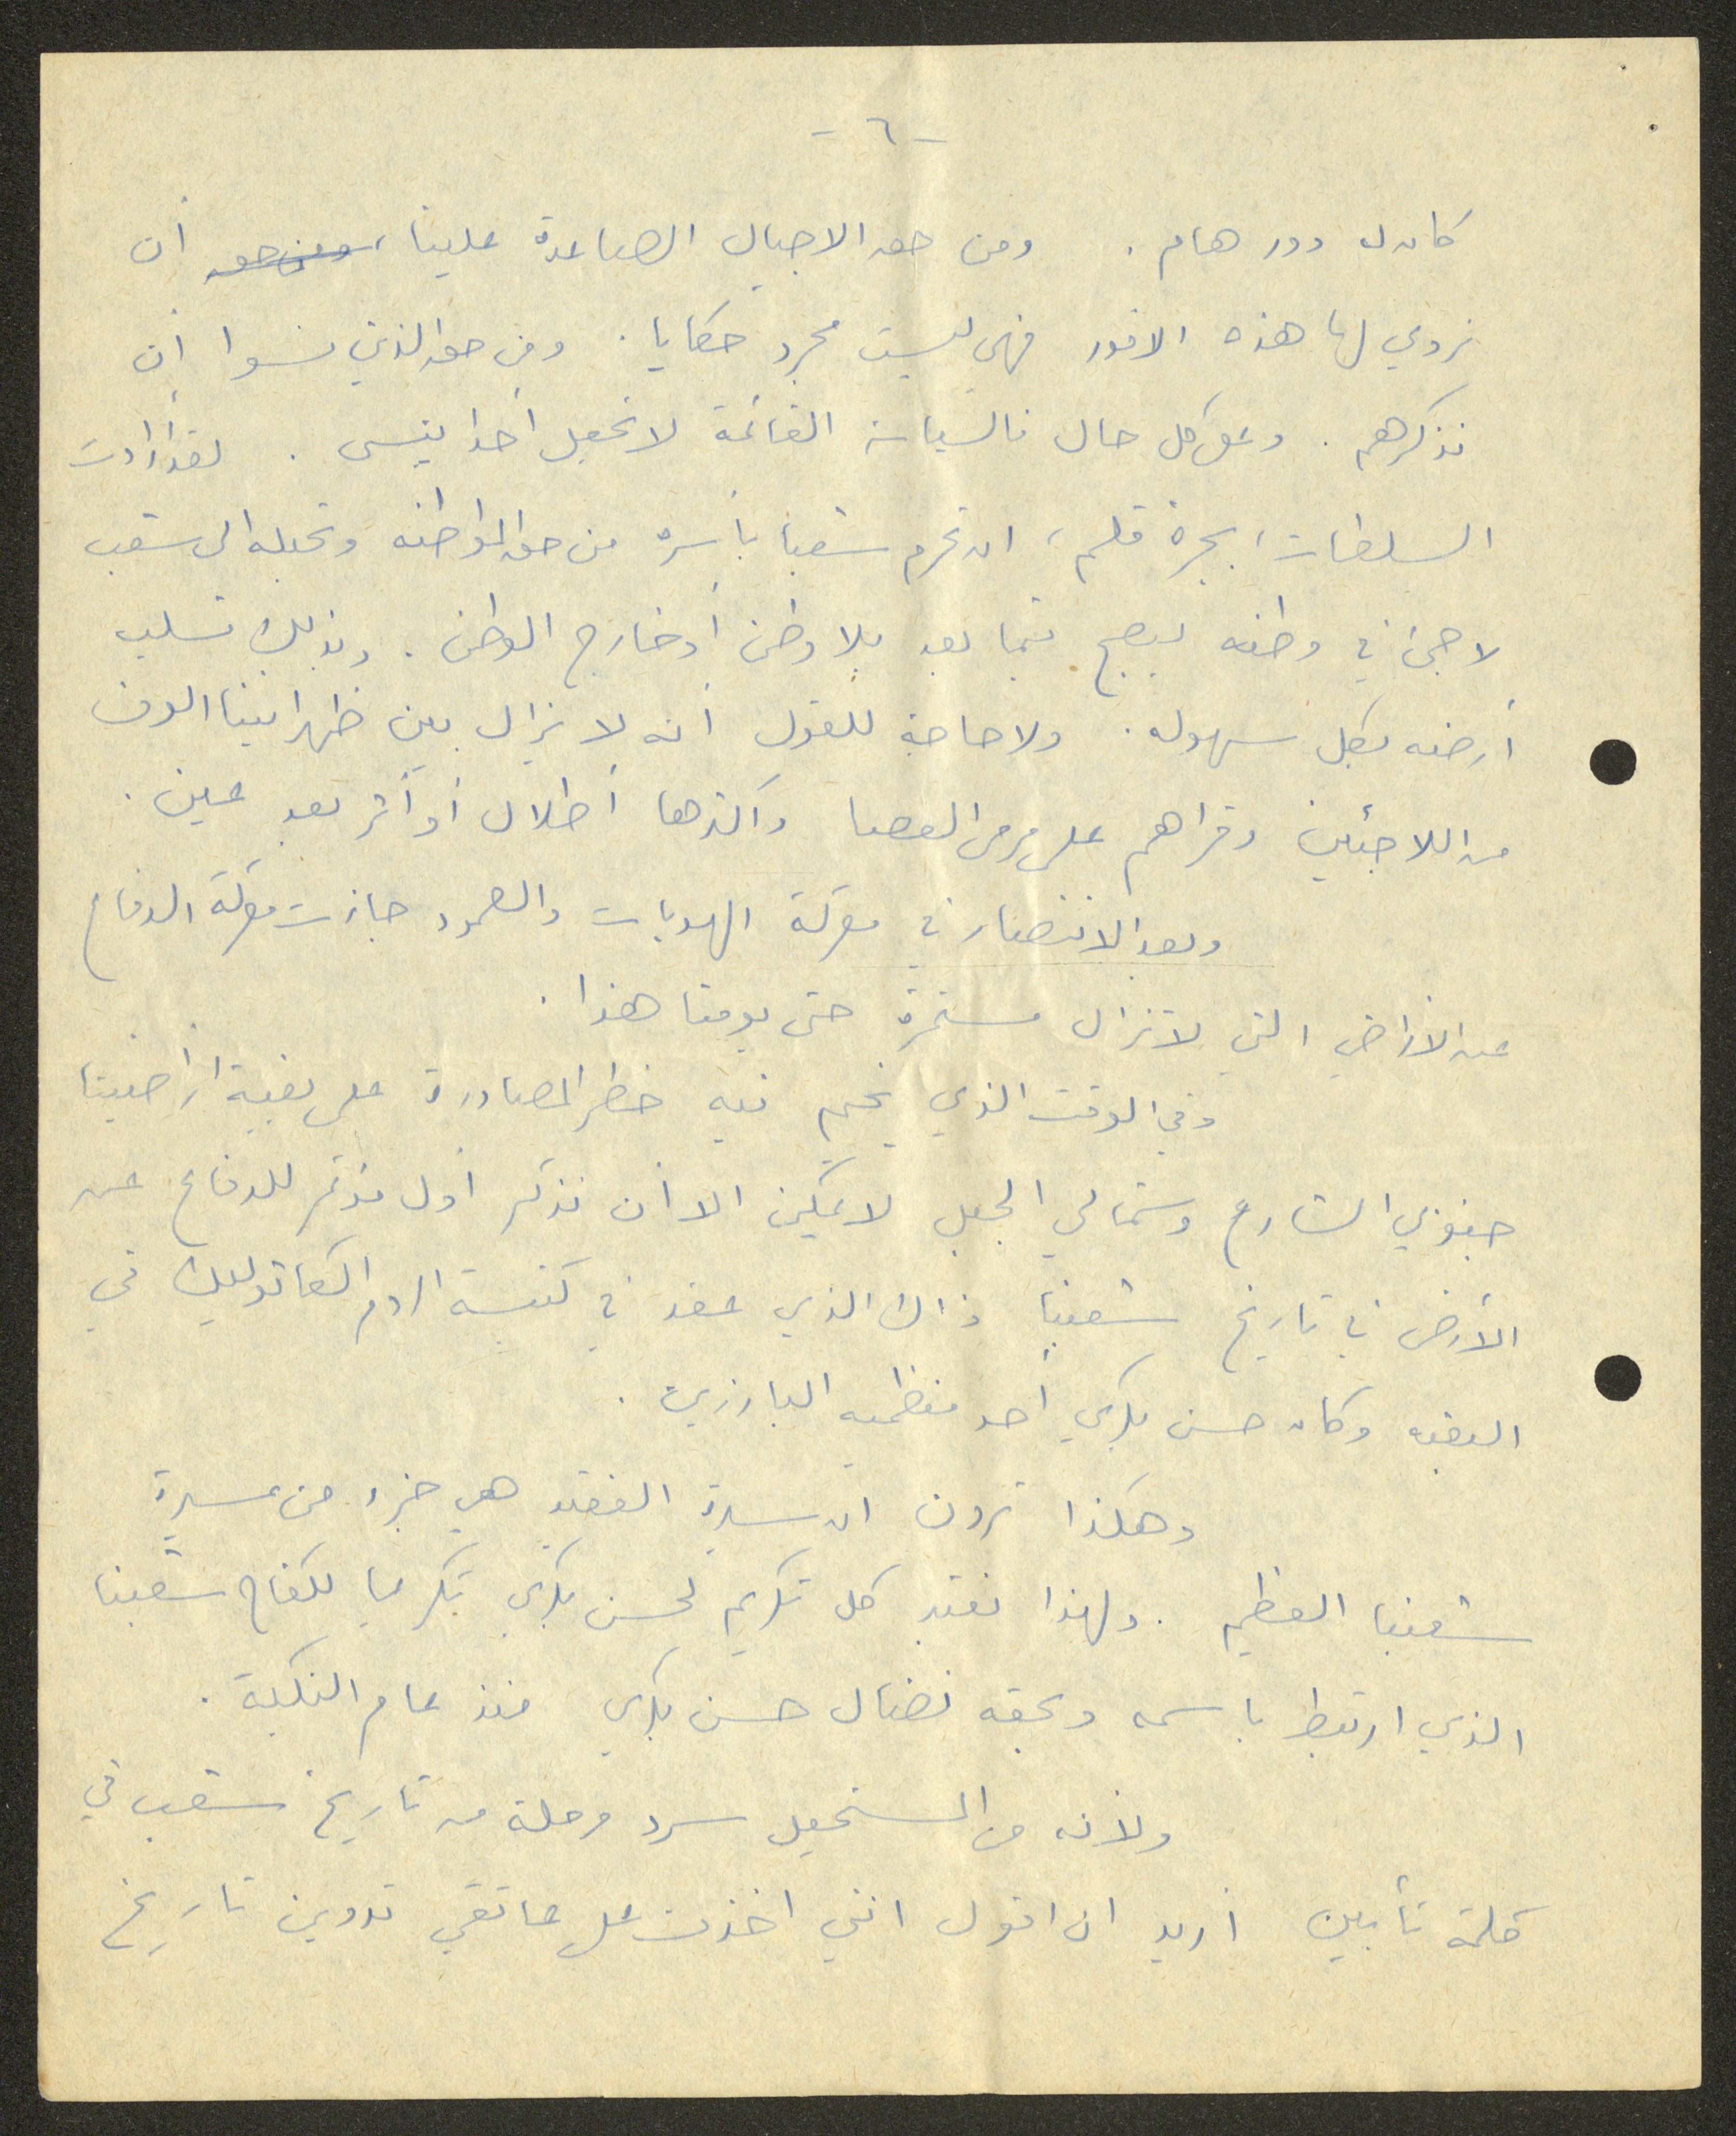 - ٦ -
كان له دور هام . ومن حق الاجيال الصاعدة علينا، ومن حق أن
نروي لها هذه الامور فهي ليست مجرد حكايا . ومن حق الذين نسوا أن
نذكرهم . وعلى كل حال فالسياسة القائمة لا تجعل أحدا ينسى . لقد أرادت
السلطات، بجرة قلم، ان تحرم شعبا بأسره من حق المواطنه وتحيله الى شعب
لاجئ في وطنه ليصبح فيما بعد بلا وطن أو خارج الوطن . وبذلك تسلب
أرضه بكل سهوله . ولا حاجة للقول أنه لا يزال بين ظهرانينا الوف
من اللاجئين وقراهم على مرمى العصا وأكثرها أطلال أو أثر بعد عين .
وبعد الانتصار في معركة الهويات والصمود جاءت معركة الدفاع
عن الاراضي التي لا تزال مستمرة حتى يومنا هذا .
وفي الوقت الذي يخيم فيه خطر المصادرة على بقية أراضينا
جنوبي الشارع وشمالي الجبل لا يمكن الا أن نذكر أول مؤتمر للدفاع عن
الأرض في تاريخ شعبنا ذاك الذي عقد في كنيسة الروم الكاثوليك في
البقيعه وكان حسن بكري أحد منظميه البارزين .
وهكذا ترون ان سيرة الفقيد هي جزء من مسيرة
شعبنا العظيم . ولهذا نعتبر كل تكريم لحسن بكري تكريما لكفاح شعبنا
الذي ارتبط باسمه وبحقه نضال حسن بكري منذ عام النكبة .
ولأنه من المستحيل سرد مرحلة من تاريخ شعب في
كلمة تأبين أريد ان اقول انني اخذت على عاتقي تدوين تاريخ